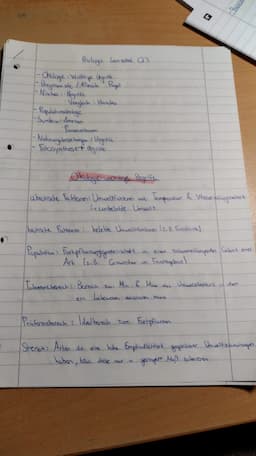 Biologie Lernzettel Q1
- Ökologie - wichtige Begriffe
- Bergmannsche / Allensche Regel
- Nischen - Begriffe
Vergleich
- Populationsökologie
- Symbiose
Parasitismus
- Nahrungsbeziehungen Begriffe
- Fotosynthese
Ökologie - wichtige Begriffe
abiotische Faktoren: Umweltfaktoren wie Temperatur &
unbelebte Umwelt
biotische Faktoren: belebte Umweltfaktoren (z.B.
Population: Fortpflanzungsgemeinschaft in einem zusammenhängenden Gebiet einer
Art (z.B.
Toleranzbereich: Bereich zum Min. & Max des Umweltfaktors in dem
ein Lebewesen existieren kann
Präferenzbereich: Idealbereich zum Fortpflanzen
Stenök: Arten die eine hohe Empfindlichkeit gegenüber Umweltschwankungen
haben, bzw. diese nur in geringem Maß tolerieren